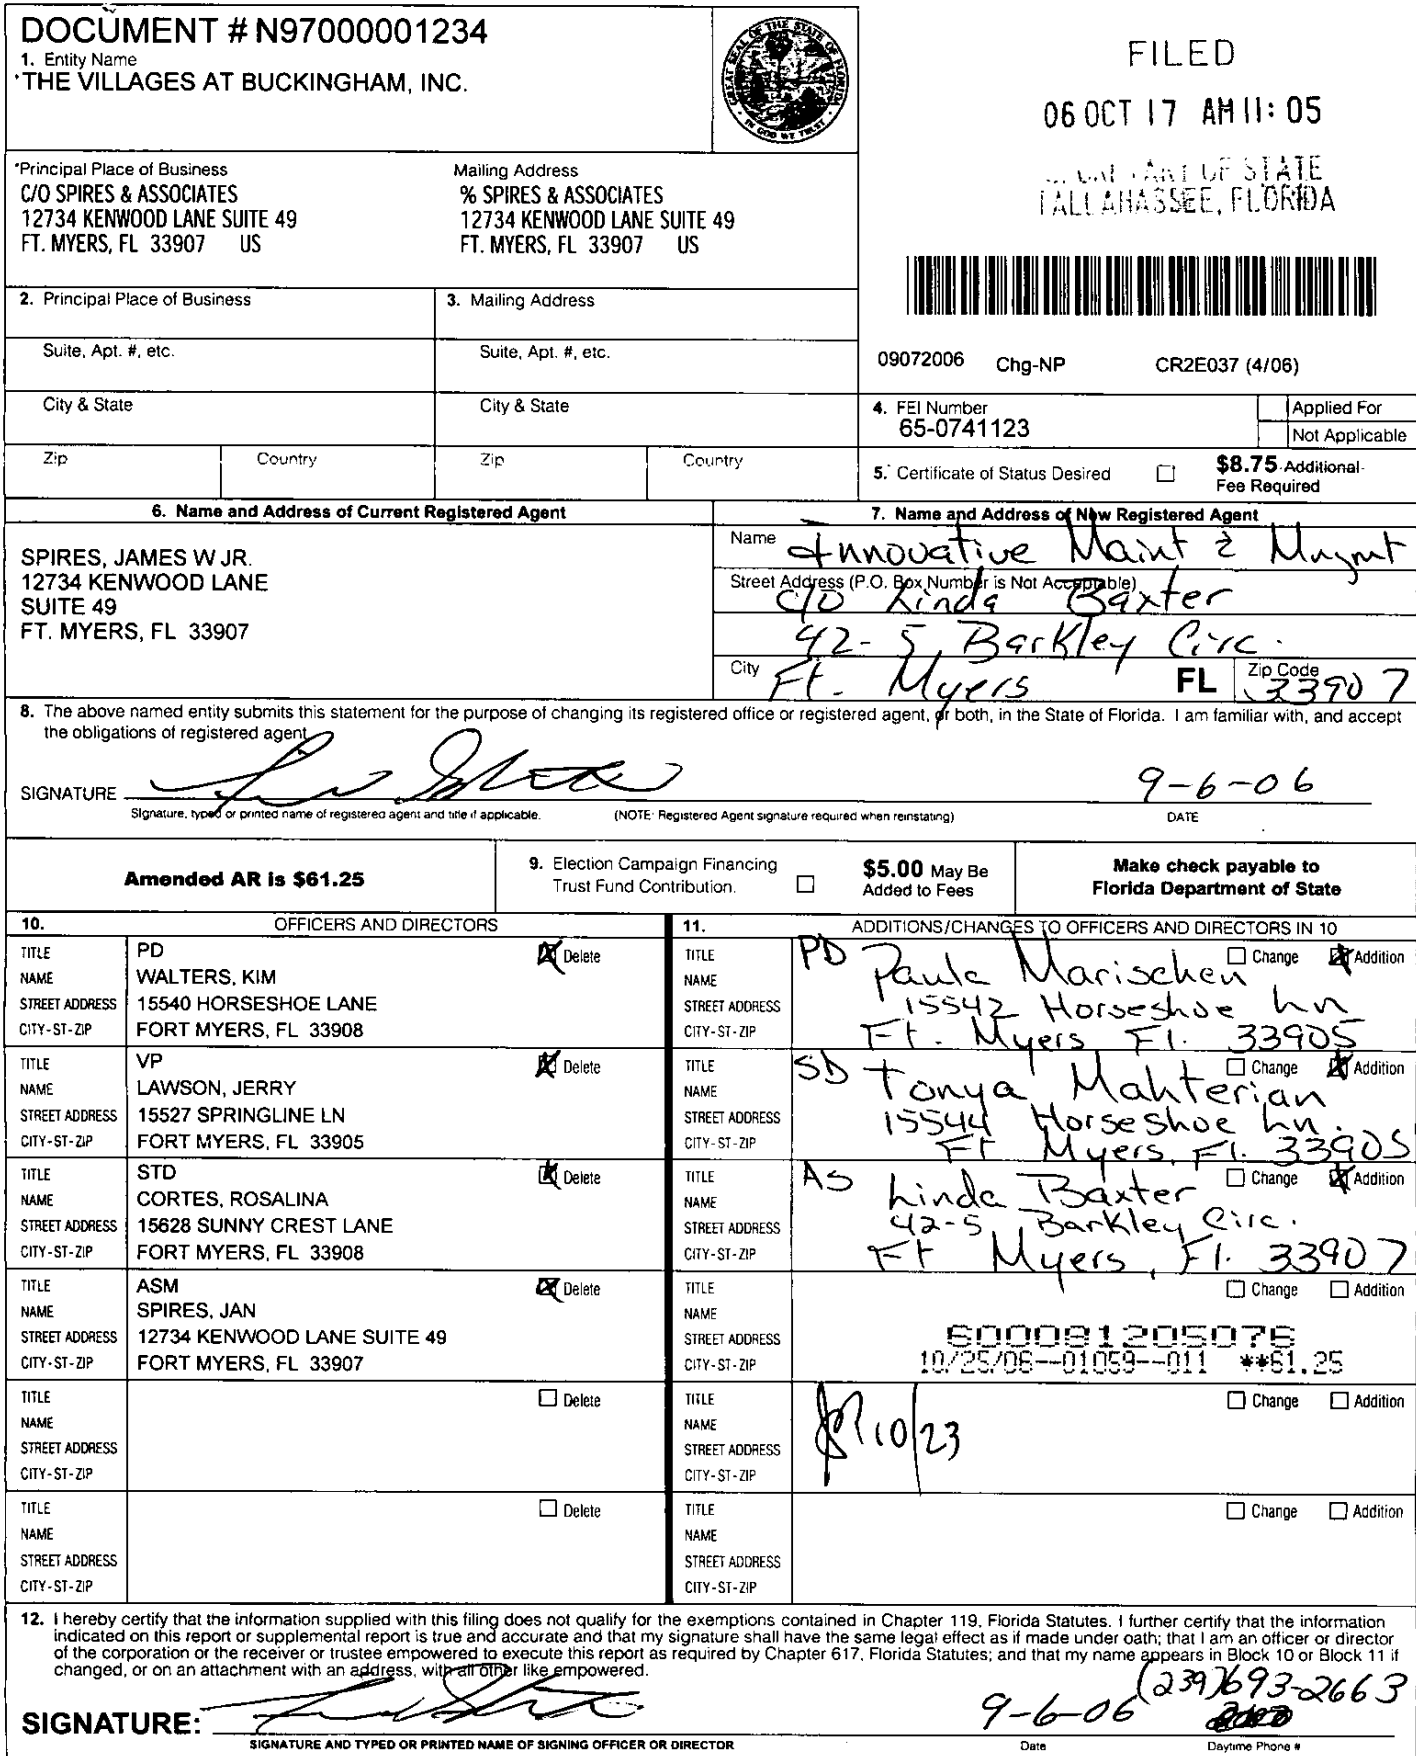 DOCUMENT # N97000001234
1. Entity Name
THE VILLAGES AT BUCKINGHAM, INC.
GREAT SEAL OF THE STATE OF FLORIDA
IN GOD WE TRUST
FILED
06 OCT 17 AM 11: 05
OF STATE
TALLAHASSEE, FLORIDA
Principal Place of Business
C/O SPIRES & ASSOCIATES
12734 KENWOOD LANE SUITE 49
FT. MYERS, FL 33907 US
Mailing Address
% SPIRES & ASSOCIATES
12734 KENWOOD LANE SUITE 49
FT. MYERS, FL 33907 US
2. Principal Place of Business
3. Mailing Address
Suite, Apt. #, etc.
Suite, Apt. #, etc.
09072006 Chg-NP CR2E037 (4/06)
City & State
City & State
4. FEI Number
65-0741123
Applied For
Not Applicable
Zip
Country
Zip
Country
5. Certificate of Status Desired
$8.75 Additional
Fee Required
6. Name and Address of Current Registered Agent
SPIRES, JAMES W JR.
12734 KENWOOD LANE
SUITE 49
FT. MYERS, FL 33907
7. Name and Address of New Registered Agent
Name Innovative Maint & Mngmt
Street Address (P.O. Box Number is Not Acceptable)
c/o Linda Baxter
42-5 Barkley Circ.
City Ft. Myers FL Zip Code 33907
8. The above named entity submits this statement for the purpose of changing its registered office or registered agent, or both, in the State of Florida. I am familiar with, and accept
the obligations of registered agent
SIGNATURE 9-6-06
Signature, typed or printed name of registered agent and title if applicable. (NOTE: Registered Agent signature required when reinstating) DATE
Amended AR is $61.25
9. Election Campaign Financing
Trust Fund Contribution.
$5.00 May Be
Added to Fees
Make check payable to
Florida Department of State
10. OFFICERS AND DIRECTORS
11. ADDITIONS/CHANGES TO OFFICERS AND DIRECTORS IN 10
TITLE PD Delete
NAME WALTERS, KIM
STREET ADDRESS 15540 HORSESHOE LANE
CITY-ST-ZIP FORT MYERS, FL 33908
TITLE PD Change Addition
NAME Paula Marischen
STREET ADDRESS 15542 Horseshoe Ln
CITY-ST-ZIP Ft. Myers Fl. 33905
TITLE VP Delete
NAME LAWSON, JERRY
STREET ADDRESS 15527 SPRINGLINE LN
CITY-ST-ZIP FORT MYERS, FL 33905
TITLE SD Change Addition
NAME Tonya Mahterian
STREET ADDRESS 15544 Horseshoe Ln.
CITY-ST-ZIP Ft Myers, Fl. 33905
TITLE STD Delete
NAME CORTES, ROSALINA
STREET ADDRESS 15628 SUNNY CREST LANE
CITY-ST-ZIP FORT MYERS, FL 33908
TITLE AS Change Addition
NAME Linda Baxter
STREET ADDRESS 42-5 Barkley Circ.
CITY-ST-ZIP Ft Myers, Fl. 33907
TITLE ASM Delete
NAME SPIRES, JAN
STREET ADDRESS 12734 KENWOOD LANE SUITE 49
CITY-ST-ZIP FORT MYERS, FL 33907
TITLE Change Addition
NAME
STREET ADDRESS 600081205076
CITY-ST-ZIP 10/25/06--01059--011 **61.25
TITLE Delete
NAME
STREET ADDRESS
CITY-ST-ZIP
TITLE Change Addition
NAME 10/23
STREET ADDRESS
CITY-ST-ZIP
TITLE Delete
NAME
STREET ADDRESS
CITY-ST-ZIP
TITLE Change Addition
NAME
STREET ADDRESS
CITY-ST-ZIP
12. I hereby certify that the information supplied with this filing does not qualify for the exemptions contained in Chapter 119, Florida Statutes. I further certify that the information
indicated on this report or supplemental report is true and accurate and that my signature shall have the same legal effect as if made under oath; that I am an officer or director
of the corporation or the receiver or trustee empowered to execute this report as required by Chapter 617, Florida Statutes; and that my name appears in Block 10 or Block 11 if
changed, or on an attachment with an address, with all other like empowered.
(239)693-2663
SIGNATURE: 9-6-06
SIGNATURE AND TYPED OR PRINTED NAME OF SIGNING OFFICER OR DIRECTOR Date Daytime Phone #